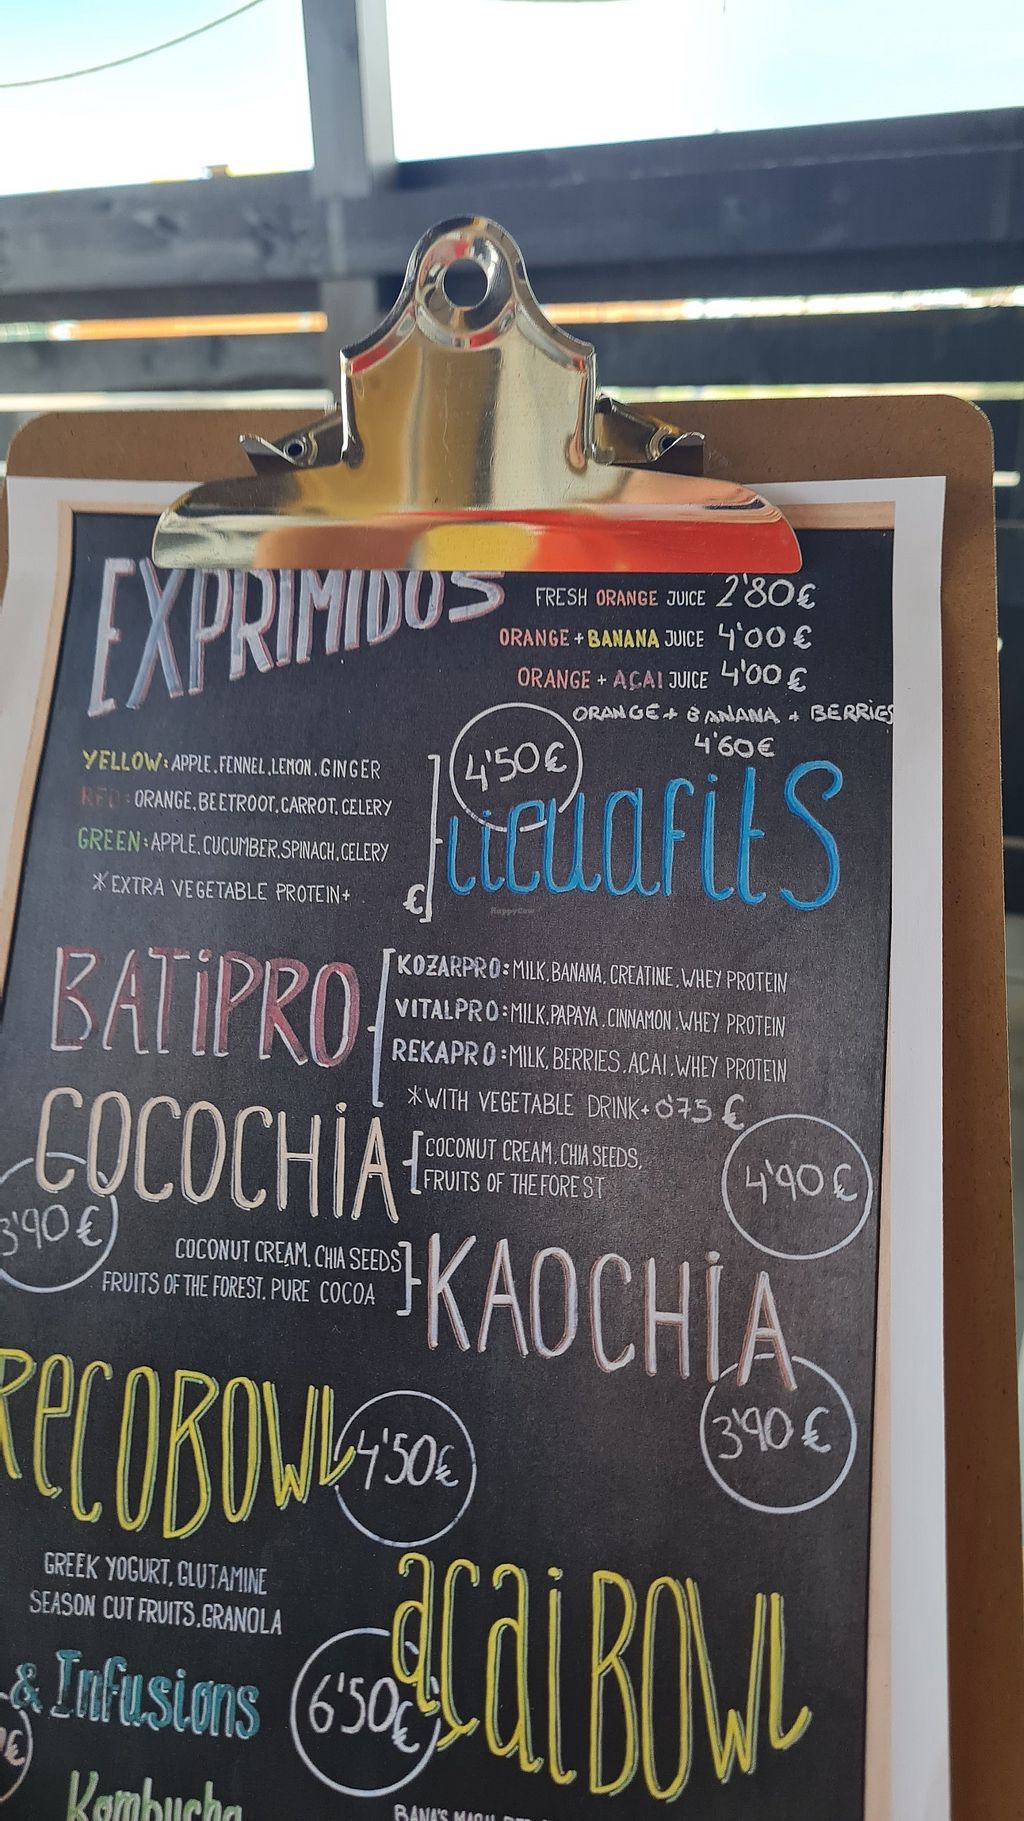 EXPRIMIDOS
FRESH ORANGE JUICE 2'80€
ORANGE + BANANA JUICE 4'00€
ORANGE + AÇAI JUICE 4'00€
ORANGE + BANANA + BERRIES
4'60€
4'50€
licuafitS
YELLOW: APPLE, FENNEL, LEMON, GINGER
RED: ORANGE, BEETROOT, CARROT, CELERY
GREEN: APPLE, CUCUMBER, SPINACH, CELERY
*EXTRA VEGETABLE PROTEIN+ €
HappyCow
BATiPRO
KOZARPRO: MILK, BANANA, CREATINE, WHEY PROTEIN
VITALPRO: MILK, PAPAYA, CINNAMON, WHEY PROTEIN
REKAPRO: MILK, BERRIES, AÇAI, WHEY PROTEIN
*WITH VEGETABLE DRINK+ 0'75 €
4'90€
COCOCHiA
COCONUT CREAM, CHIA SEEDS,
FRUITS OF THE FOREST
3'90€
COCONUT CREAM, CHIA SEEDS
FRUITS OF THE FOREST, PURE COCOA
KAOCHiA
3'90€
RecoBOWL
4'50€
GREEK YOGURT, GLUTAMINE
SEASON CUT FRUITS, GRANOLA
açaiBOWL
6'50€
& Infusions
€
Kombucha